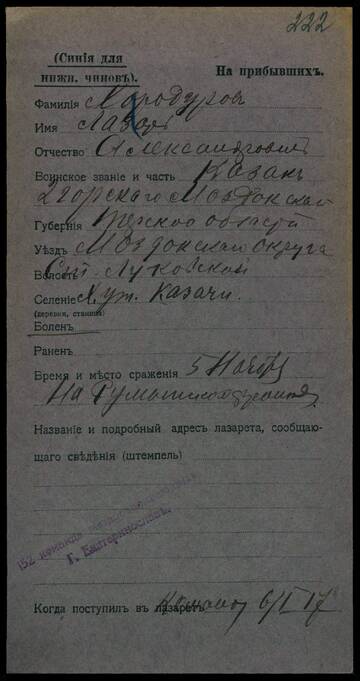 222
(Синія для
нижн. чиновъ).
На прибывшихъ.
Фамилія
Имя Лазарь
Отчество Александровичъ
Воинское званіе и часть Казакъ
Моздокскаго
Губернія Терской области
Уѣздъ Моздокскаго округа
Волость Ст. Луковской
Селеніе Хут. Казачи.
(деревня, станица)
Боленъ
Раненъ
Время и мѣсто сраженія 5 Ноября
На Румынскомъ
Названіе и подробный адресъ лазарета, сообщаю-
щаго свѣдѣнія (штемпель)
152 команда
г. Екатеринославъ.
Когда поступилъ въ лазаретъ 6/I 17